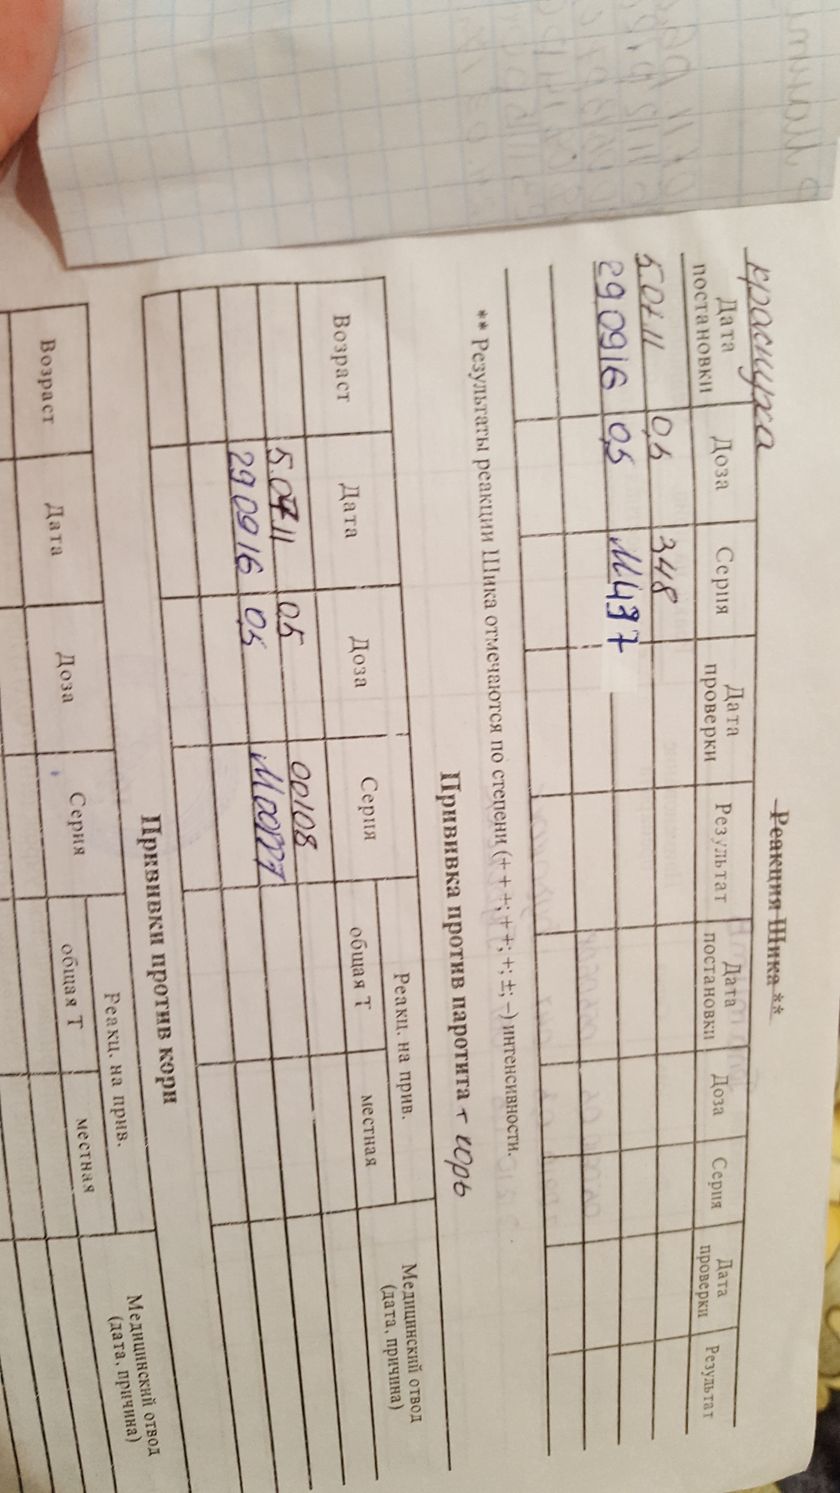 Реакция Шика **
краснуха
Дата постановки Доза Серия Дата проверки Результат Дата постановки Доза Серия Дата проверки Результат
5.07.11 0,5 348
29.09.16 0,5 М437
** Результаты реакции Шика отмечаются по степени (+ + +; + +; +; ±; –) интенсивности.
Прививка против паротита + корь
Возраст Дата Доза Серия Реакц. на прив. Медицинский отвод (дата, причина)
общая Т местная
5.07.11 0,5 00108
29.09.16 0,5 М00077
Прививки против кори
Возраст Дата Доза Серия Реакц. на прив. Медицинский отвод (дата, причина)
общая Т местная